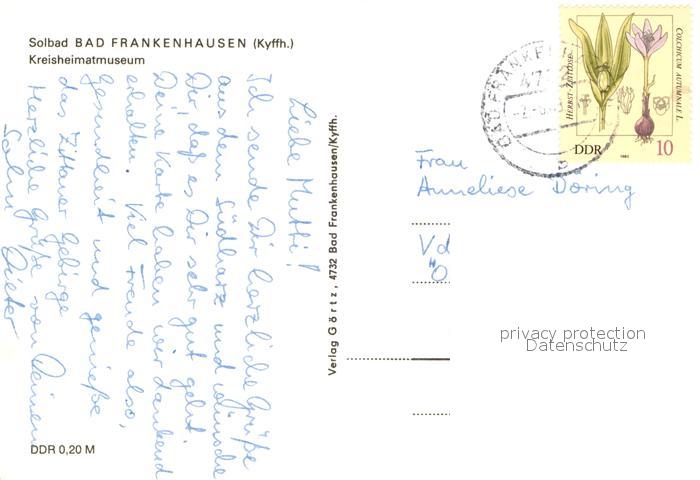 Solbad BAD FRANKENHAUSEN (Kyffh.)
Kreisheimatmuseum
Liebe Mutti!
Ich sende Dir herzliche Grüße
aus dem Südharz und wünsche
Dir, daß es Dir sehr gut geht.
Deine Karte haben wir dankend
erhalten. Viel Freude also,
Gesundheit und genieße
das Zittauer Gebirge
Herzliche Grüße von Deinem
Sohn Dieter
DDR 0,20 M
Verlag Görtz, 4732 Bad Frankenhausen/Kyffh.
BAD FRANKEN
HERBST-ZEITLOSE
COLCHICUM AUTUMNALE L.
DDR
1982
10
Frau
Anneliese Döring
Vd
"O
privacy protection
Datenschutz